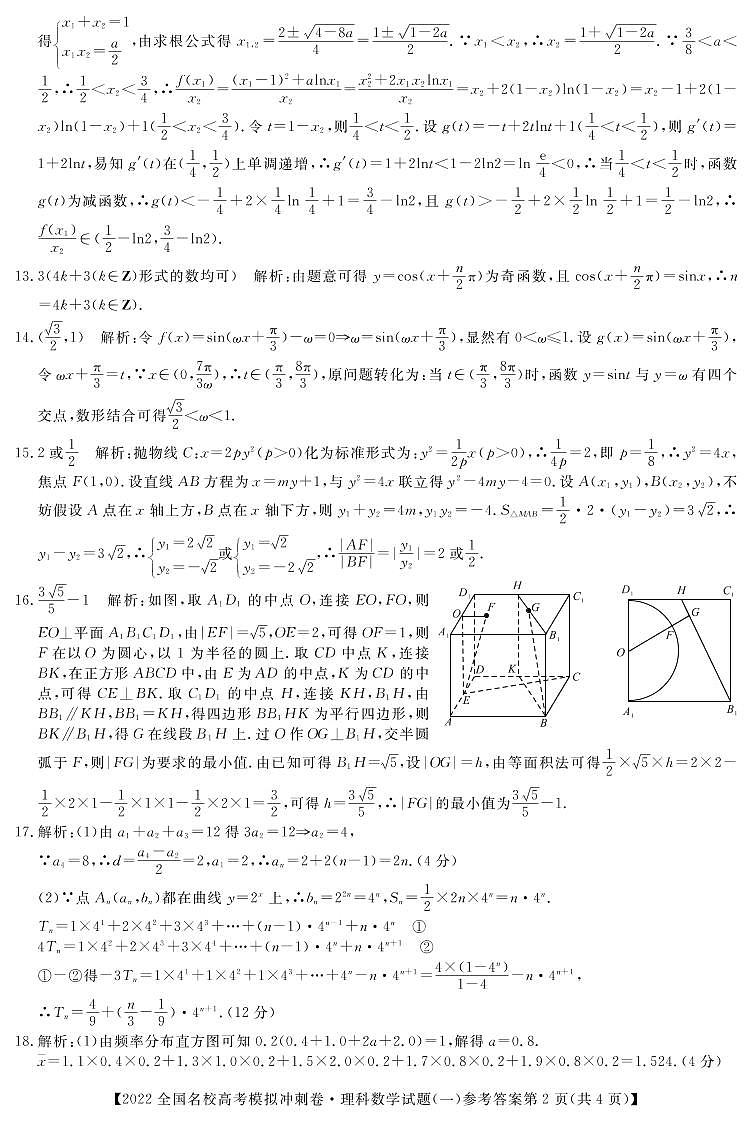 得{x₁+x₂=1 x₁x₂=a/2,由求根公式得 x₁,₂=(2±√(4-8a))/4=(1±√(1-2a))/2. ∵x₁<x₂,∴x₂=(1+√(1-2a))/2. ∵3/8<a<
1/2,∴1/2<x₂<3/4,∴f(x₁)/x₂=((x₁-1)²+alnx₁)/x₂=(x₂²+2x₁x₂lnx₁)/x₂=x₂+2(1-x₂)ln(1-x₂)=x₂-1+2(1-
x₂)ln(1-x₂)+1(1/2<x₂<3/4).令 t=1-x₂,则1/4<t<1/2.设 g(t)=-t+2tlnt+1(1/4<t<1/2),则 g′(t)=
1+2lnt,易知 g′(t)在(1/4,1/2)上单调递增,∴g′(t)=1+2lnt<1-2ln2=ln e/4<0,∴当1/4<t<1/2时,函数
g(t)为减函数,∴g(t)<-1/4+2×1/4 ln 1/4+1=3/4-ln2,且 g(t)>-1/2+2×1/2 ln 1/2+1=1/2-ln2,∴
f(x₁)/x₂∈(1/2-ln2,3/4-ln2).
13.3(4k+3(k∈Z)形式的数均可) 解析:由题意可得 y=cos(x+n/2 π)为奇函数,且 cos(x+n/2 π)=sinx,∴n
=4k+3(k∈Z).
14.(√3/2,1) 解析:令 f(x)=sin(ωx+π/3)-ω=0⇒ω=sin(ωx+π/3),显然有 0<ω≤1.设 g(x)=sin(ωx+π/3),
令 ωx+π/3=t,∵x∈(0,7π/3ω),∴t∈(π/3,8π/3),原问题转化为:当 t∈(π/3,8π/3)时,函数 y=sint 与 y=ω 有四个
交点,数形结合可得√3/2<ω<1.
15.2 或1/2 解析:抛物线 C:x=2py²(p>0)化为标准形式为:y²=1/2p x(p>0),∴1/4p=2,即 p=1/8,∴y²=4x,
焦点 F(1,0).设直线 AB 方程为 x=my+1,与 y²=4x 联立得 y²-4my-4=0.设 A(x₁,y₁),B(x₂,y₂),不
妨假设 A 点在 x 轴上方,B 点在 x 轴下方,则 y₁+y₂=4m,y₁y₂=-4. S△MAB=1/2·2·(y₁-y₂)=3√2,∴
y₁-y₂=3√2,∴{y₁=2√2 y₂=-√2或{y₁=√2 y₂=-2√2,∴|AF|/|BF|=|y₁/y₂|=2 或1/2.
16.3√5/5-1 解析:如图,取 A₁D₁ 的中点 O,连接 EO,FO,则
EO⊥平面 A₁B₁C₁D₁,由|EF|=√5,OE=2,可得 OF=1,则
F 在以 O 为圆心,以 1 为半径的圆上.取 CD 中点 K,连接
BK,在正方形 ABCD 中,由 E 为 AD 的中点,K 为 CD 的中
点,可得 CE⊥BK.取 C₁D₁ 的中点 H,连接 KH,B₁H,由
BB₁∥KH,BB₁=KH,得四边形 BB₁HK 为平行四边形,则
BK∥B₁H,得 G 在线段 B₁H 上.过 O 作 OG⊥B₁H,交半圆
D₁ H C₁ O F G A₁ B₁ D K C E A B
D₁ H C₁ G F O A₁ B₁
弧于 F,则|FG|为要求的最小值.由已知可得 B₁H=√5,设|OG|=h,由等面积法可得1/2×√5×h=2×2-
1/2×2×1-1/2×1×1-1/2×2×1=3/2,可得 h=3√5/5,∴|FG|的最小值为3√5/5-1.
17.解析:(1)由 a₁+a₂+a₃=12 得 3a₂=12⇒a₂=4,
∵a₄=8,∴d=(a₄-a₂)/2=2,a₁=2,∴aₙ=2+2(n-1)=2n.(4 分)
(2)∵点 Aₙ(aₙ,bₙ)都在曲线 y=2ˣ 上,∴bₙ=2²ⁿ=4ⁿ,Sₙ=1/2×2n×4ⁿ=n·4ⁿ.
Tₙ=1×4¹+2×4²+3×4³+⋯+(n-1)·4ⁿ⁻¹+n·4ⁿ ①
4Tₙ=1×4²+2×4³+3×4⁴+⋯+(n-1)·4ⁿ+n·4ⁿ⁺¹ ②
①-②得-3Tₙ=1×4¹+1×4²+1×4³+⋯+4ⁿ-n·4ⁿ⁺¹=4×(1-4ⁿ)/(1-4)-n·4ⁿ⁺¹,
∴Tₙ=4/9+(n/3-1/9)·4ⁿ⁺¹.(12 分)
18.解析:(1)由频率分布直方图可知 0.2(0.4+1.0+2a+2.0)=1,解得 a=0.8.
x̄=1.1×0.4×0.2+1.3×1.0×0.2+1.5×2.0×0.2+1.7×0.8×0.2+1.9×0.8×0.2=1.524.(4 分)
【2022 全国名校高考模拟冲刺卷·理科数学试题(一)参考答案第 2 页(共 4 页)】